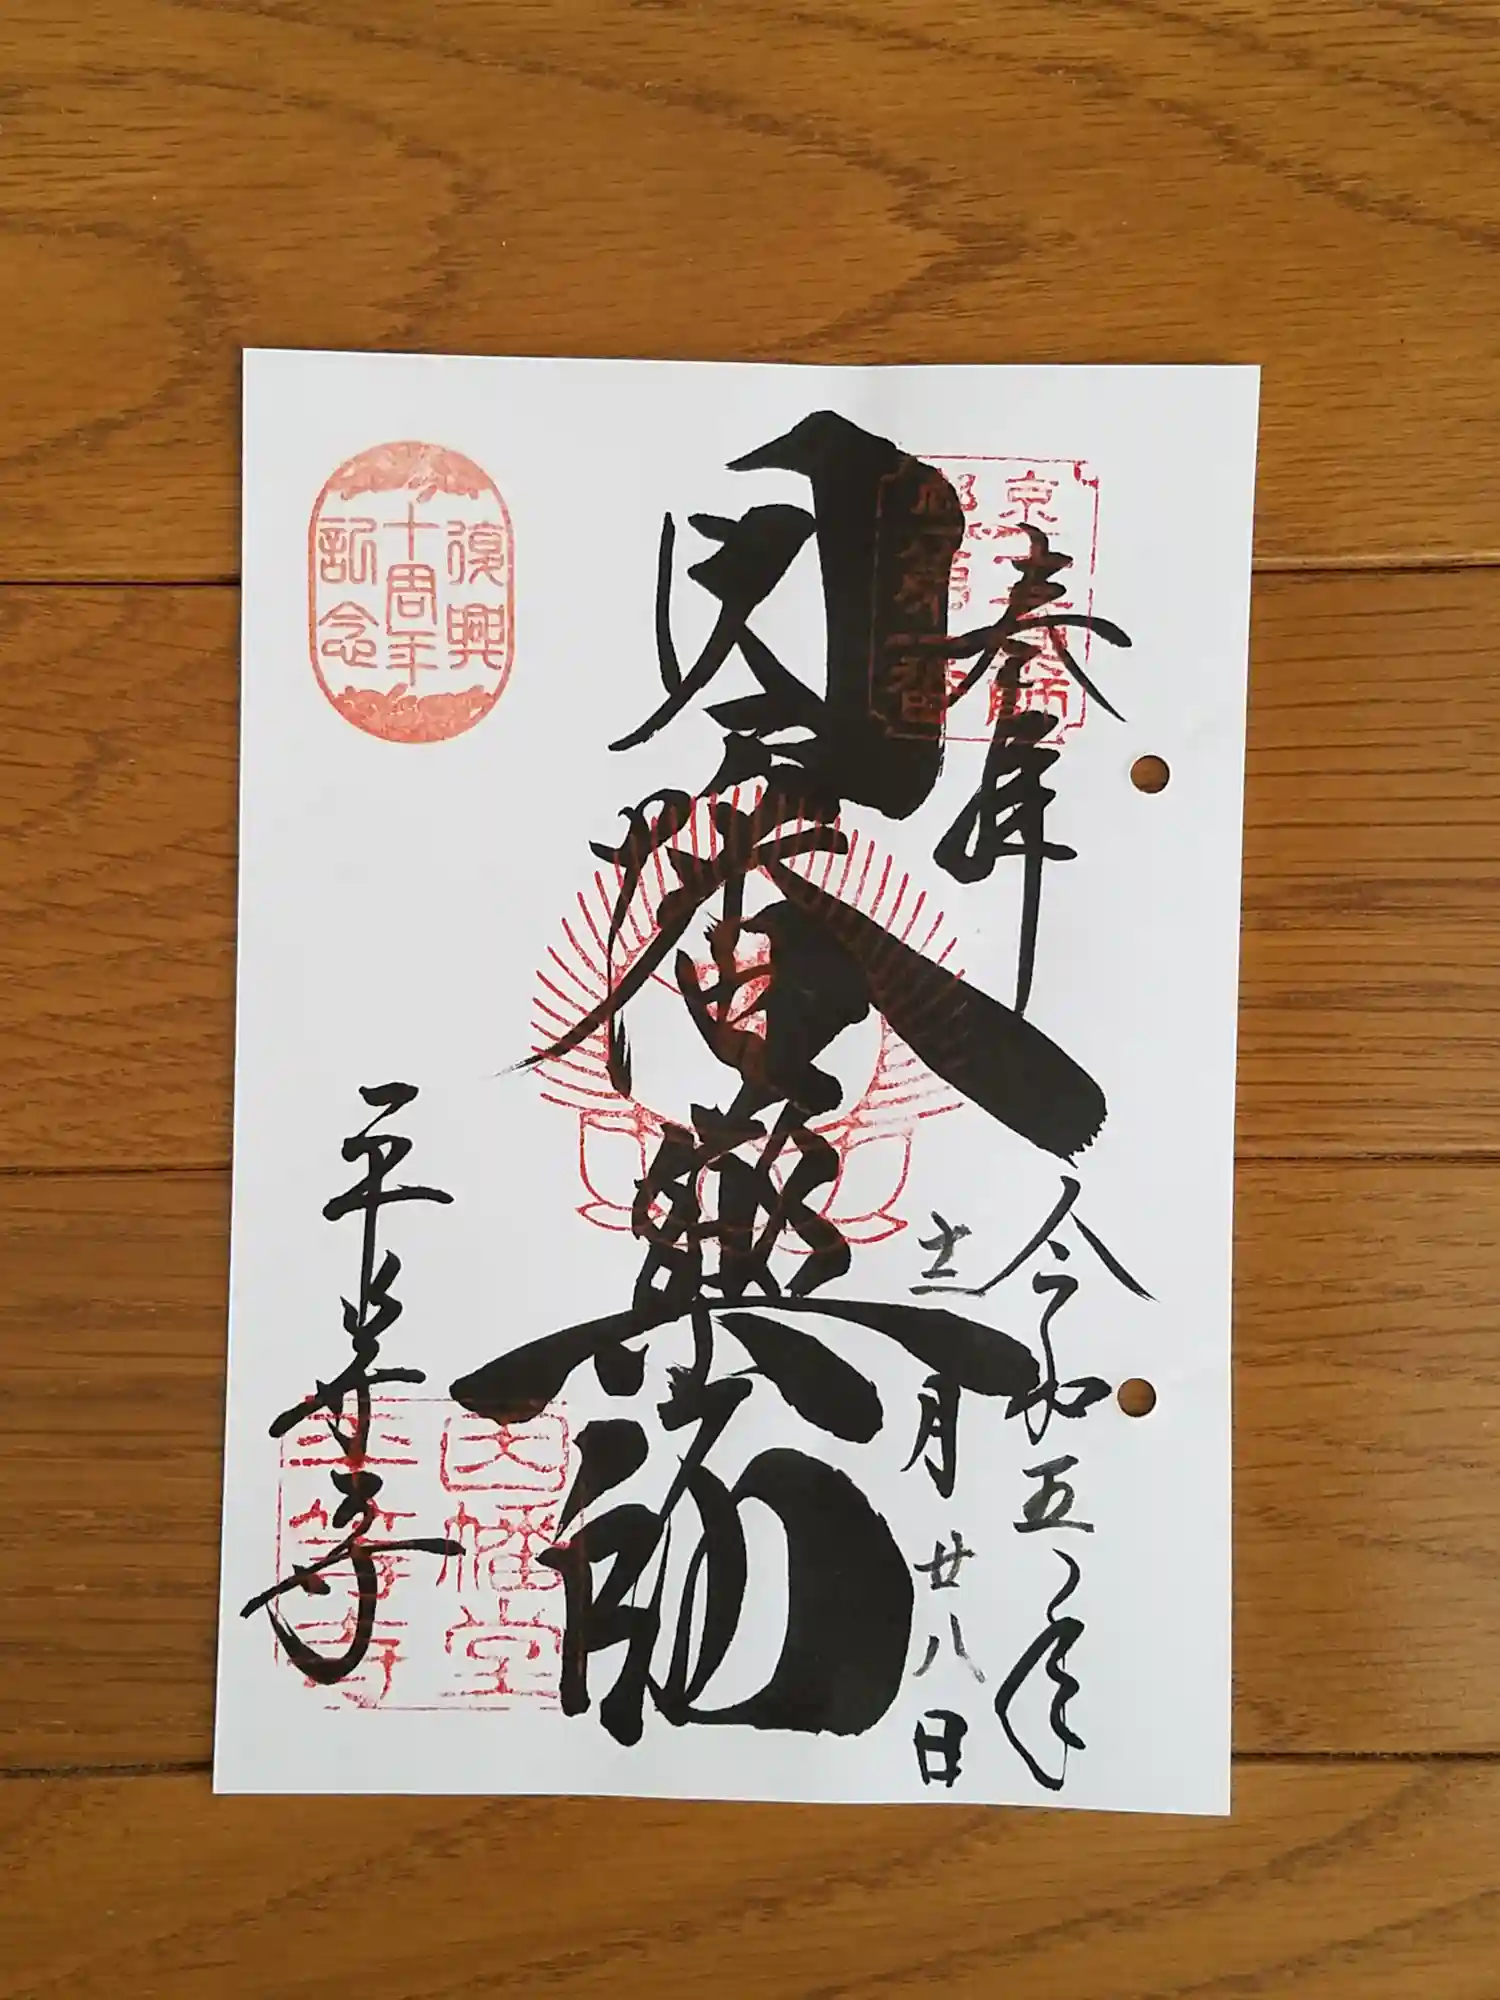 奉拝
令和五年
十二月廿八日
京都十二薬師
第一番
因幡薬師
因幡堂
平等寺
平等寺
復興
十周年
記念